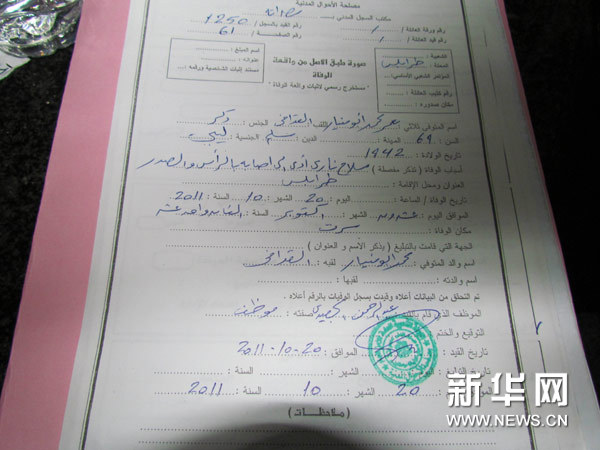 مصلحة الأحوال المدنية
مكتب السجل المدني
رقم ورقة العائلة / رقم القيد بالسجل 1250
رقم قيد العائلة / رقم الصفحة 61
الشعبية : طرابلس
المحلة
المؤتمر الشعبي الأساسي :
رقم كتيب العائلة :
مكان صدوره :
صورة طبق الأصل من واقعة
الوفاة
"مستخرج رسمي لإثبات واقعة الوفاة"
اسم المبلغ :
عنوانه :
مستند إثبات الشخصية ورقمه :
اسم المتوفي ثلاثي معمر محمد أبومنيار اللقب القذافي الجنس ذكر
السن 69 المهنة الدين مسلم الجنسية ليبي
تاريخ الولادة 1942
أسباب الوفاة ( تذكر مفصلة ) سلاح ناري أدى إلى إصابة بالرأس والصدر
العنوان ومحل الإقامة : طرابلس
تاريخ الوفاة / الساعة : اليوم : 20 الشهر : 10 السنة : 2011
الموافق اليوم : عشرون شهر : أكتوبر السنة : ألفان واحد عشر
مكان الوفاة : سرت
الجهة التي قامت بالتبليغ ( بذكر الاسم و العنوان )
اسم والد المتوفي : محمد أبومنيار لقبه : القذافي
اسم والدته : لقبها :
تم التحقق من البيانات أعلاه وقيدت بسجل الوفيات بالرقم أعلاه .
الموظف الذي قام عبدالرحمن صفته : موظف
التوقيع والختم
تاريخ القيد : الموافق : 20-10-2011
تاريخ الشهر : السنة :
20 الشهر : 10 السنة : 2011
( ملاحظات )
新华网
WWW.NEWS.CN